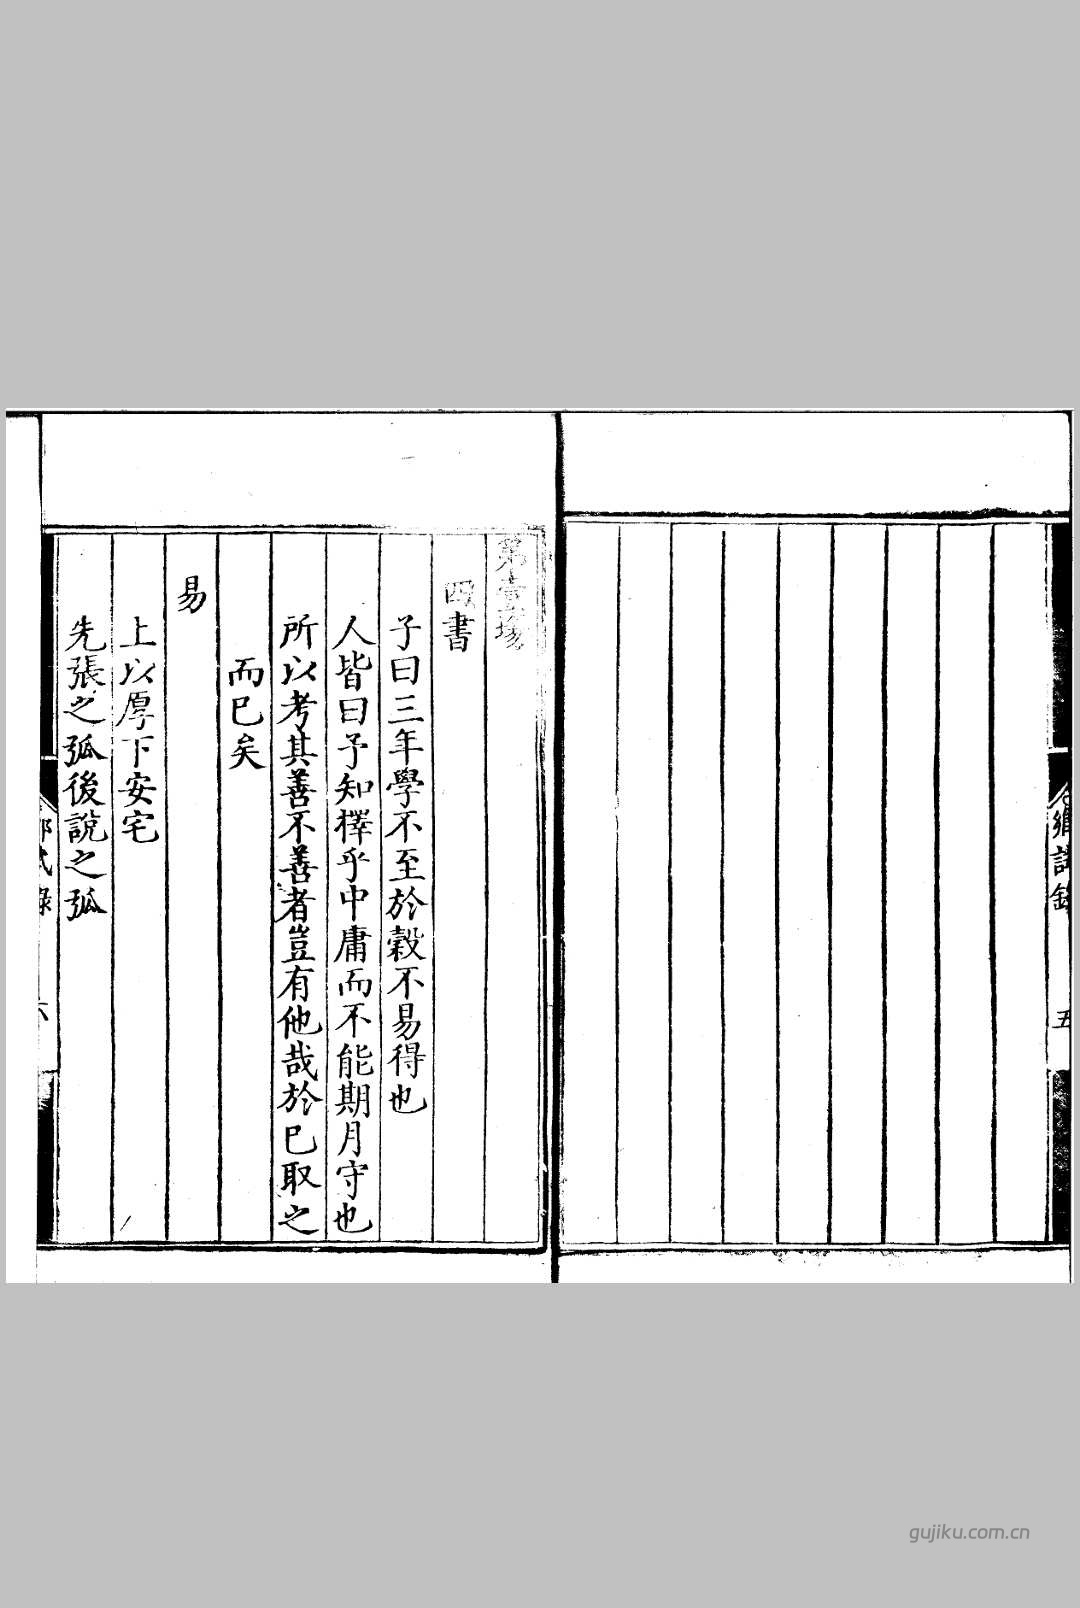 鄉試錄
五
第壹塲
四書
子曰三年學不至於榖不易得也
人皆曰予知擇乎中庸而不能期月守也
所以考其善不善者豈有他哉於已取之
而已矣
易
上以厚下安宅
先張之弧後說之弧
鄉試錄
六
gujiku.com.cn